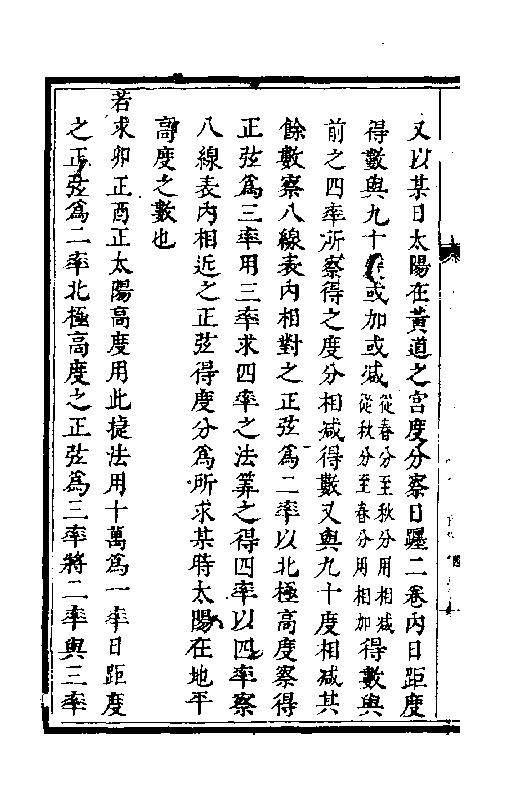 又以某日太陽在黃道之宮度分察日躔二卷內日距度
得數與九十度或加或减從春分至秋分用相减從秋分至春分用相加得數與
前之四率所察得之度分相减得數又與九十度相减其
餘數察八線表內相對之正弦爲二率以北極高度察得
正弦爲三率用三率求四率之法筭之得四率以四率察
八線表內相近之正弦得度分爲所求某時太陽在地平
高度之數也
若求卯正酉正太陽高度用此捷法用十萬爲一率日距度
之正弦爲二率北極高度之正弦爲三率將二率與三率